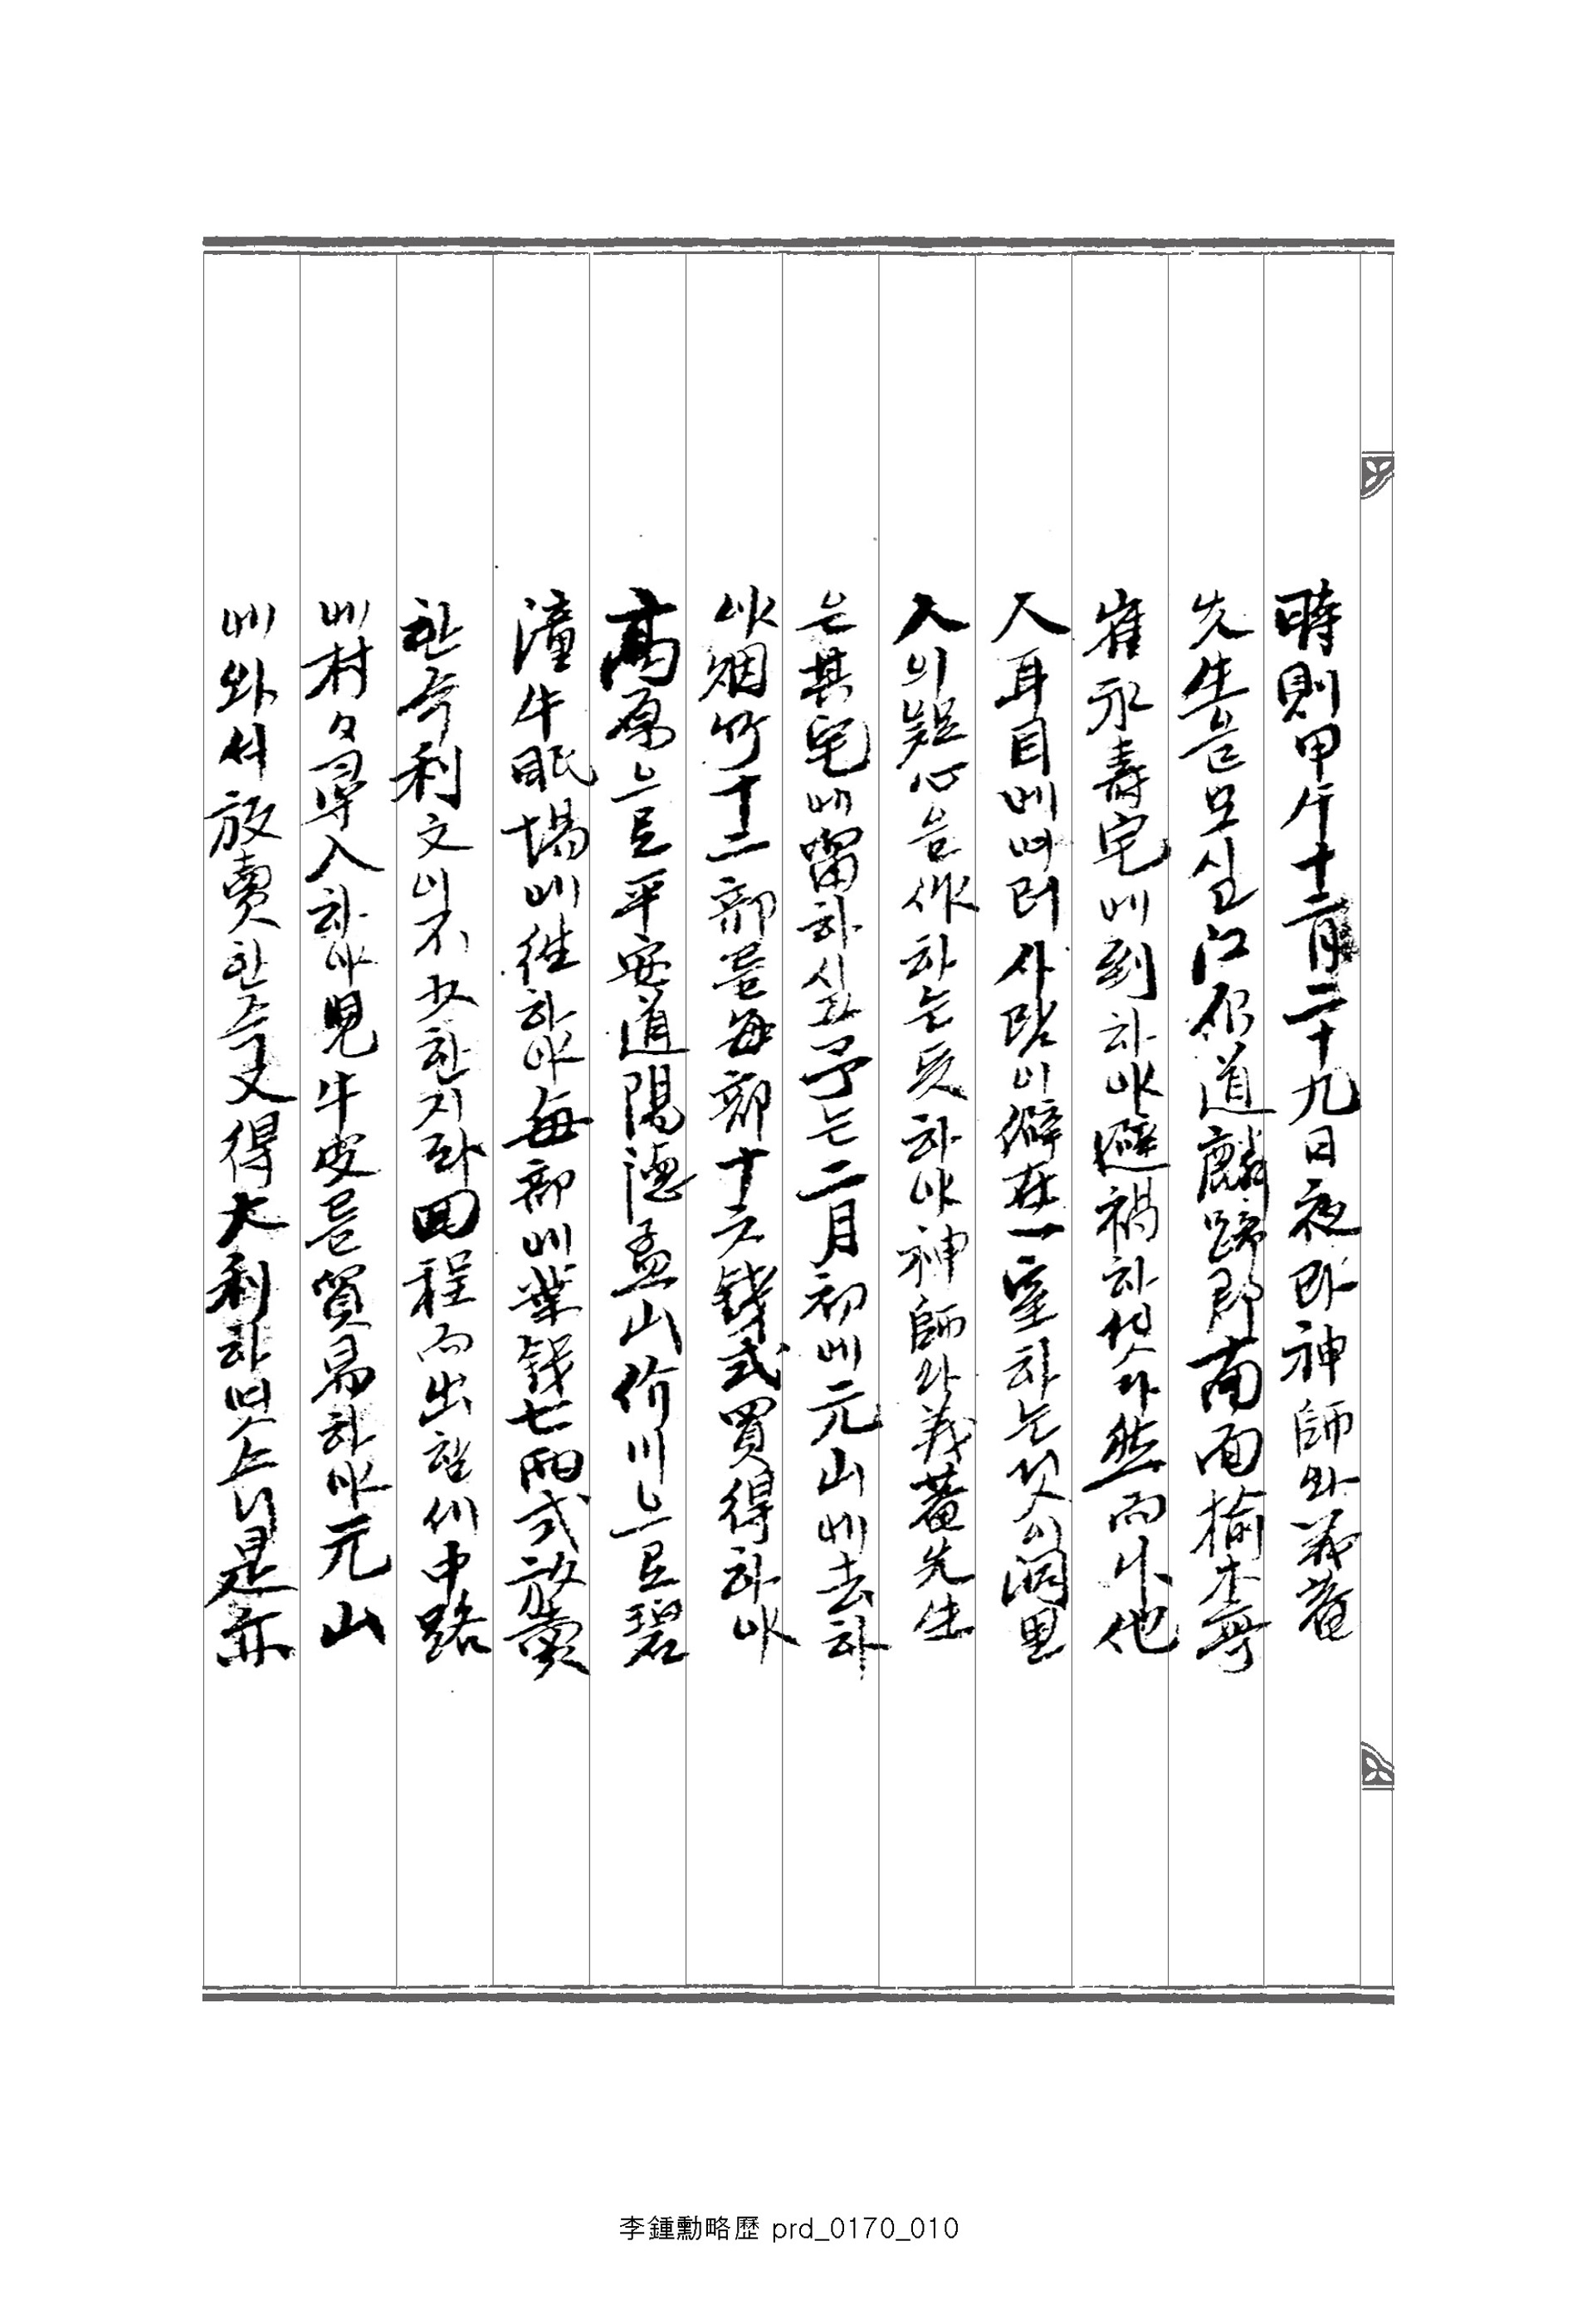 時則甲午十二月二十九日夜라神師와義菴
先生을모시고江原道麟蹄郡南面楡木亭
崔永壽宅에到하야避禍하엿스나然而나他
人耳目에여러사람이僻在一室하는것이洞里
人의疑心을作하는듯하야神師와義菴先生
은其宅에留하시고予는二月初에元山에去하
야烟竹十二部를每部十六錢式買得하야
高原으로平安道陽德孟山价川으로碧
潼牛眠場에往하야每部에葉錢七兩式放賣
한즉利文이不少한지라回程而出할새中路
에村々尋入하야見牛皮를貿易하야元山
에와서放賣한즉又得大利하엿스니是亦
李鍾勳略歷 prd_0170_010